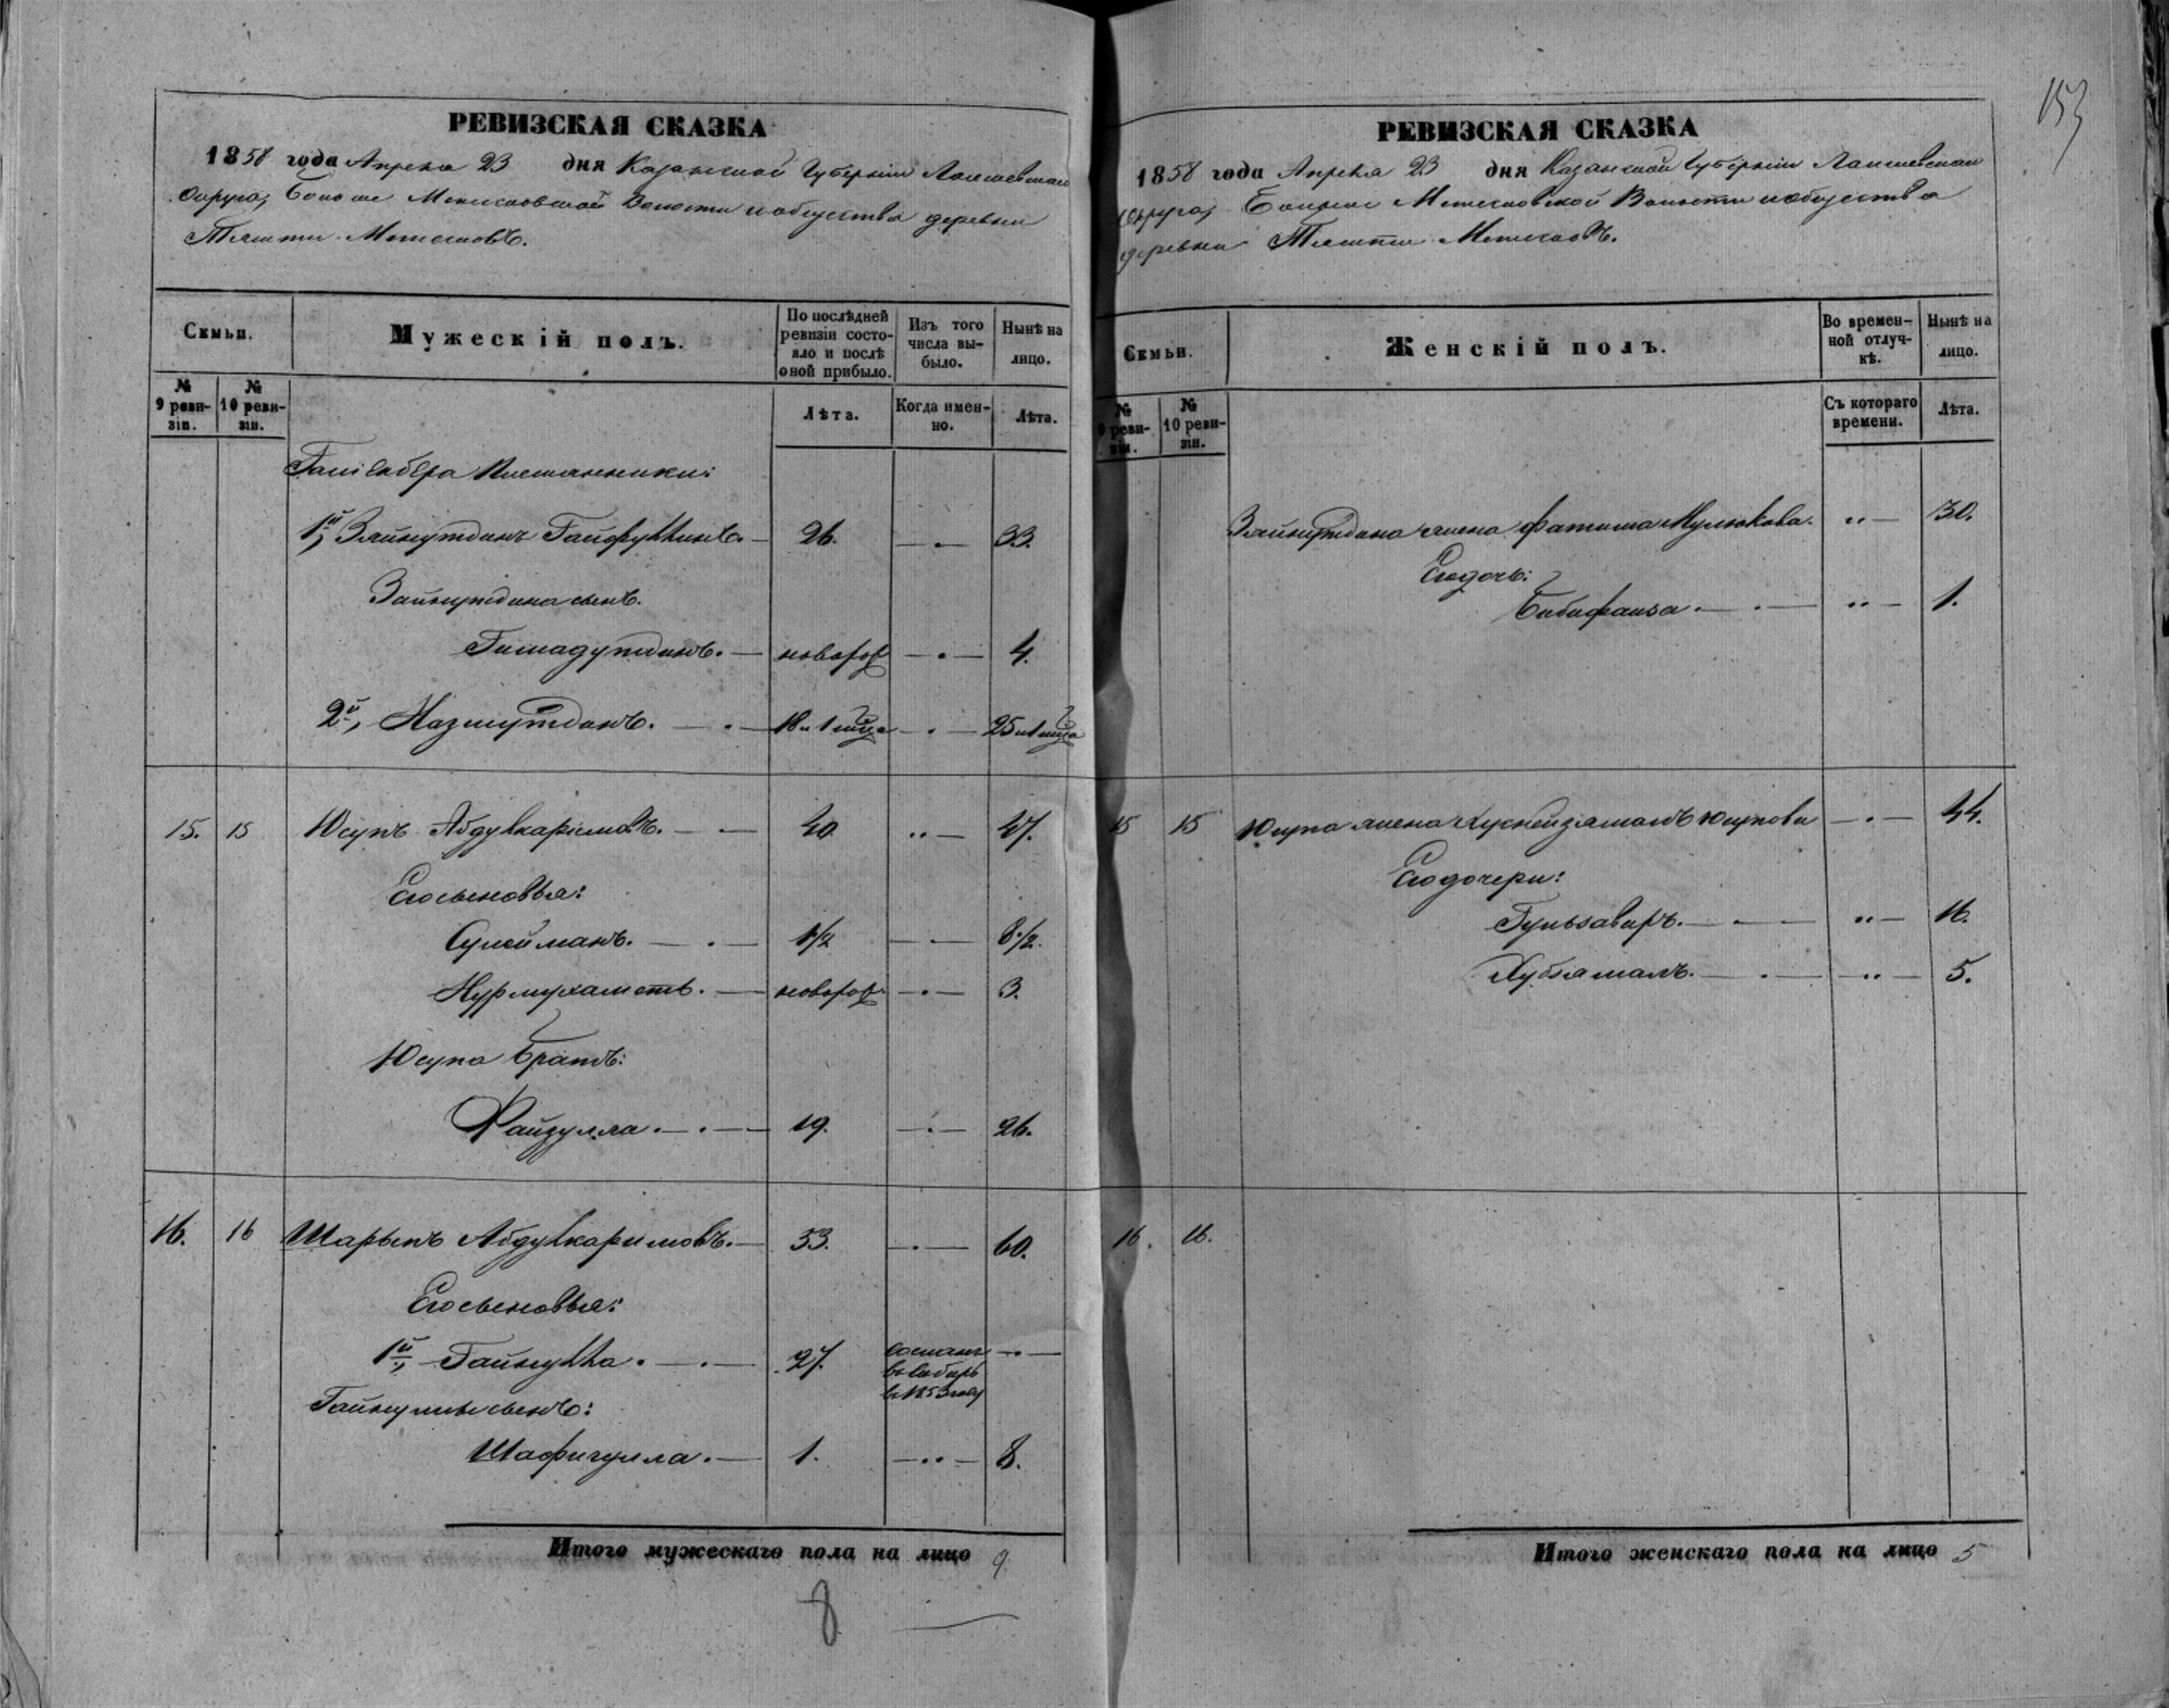 153
РЕВИЗСКАЯ СКАЗКА
1858 года Апреля 23 дня Казанской Губернiи Лаишевскаго
Округа, Больше Метесковской Волости и общества деревни
Тямти Метесковъ.
Семьи.
Мужескій полъ.
По послѣдней ревизіи состояло и послѣ оной прибыло.
Изъ того числа выбыло.
Нынѣ на лицо.
№ 9 ревизіи.
№ 10 ревизіи.
Лѣта.
Когда именно.
Лѣта.
племянники:
1й, Зайнутдинъ Гайфуллинъ. — 26. — 33.
Зайнутдина сынъ.
Гимадутдинъ. — новорож — 4.
2й, Назмутдинъ. — 18 и 1 мца — 25 и 1 мца
15. 15 Юсупъ Абдулкаримовъ. — 40. — 47.
Его сыновья:
Сулейманъ. — 1 1/2 — 8 1/2.
Нурмухаметъ. — новорож — 3.
Юсупа братъ:
Файзулла. — 19. — 26.
16. 16 Шарыпъ Абдулкаримовъ. — 53. — 60.
Его сыновья:
1й, Гайнулла. — 27. сосланъ въ Сибирь в 1853 году —
Гайнуллы сынъ:
Шафигулла. — 1. — 8.
Итого мужескаго пола на лицо 9
8
РЕВИЗСКАЯ СКАЗКА
1858 года Апреля 23 дня Казанской Губернiи Лаишевскаго
Округа, Больше Метесковской Волости и общества
деревни Тямти Метесковъ.
Семьи.
Женскій полъ.
Во временной отлучкѣ.
Нынѣ на лицо.
№ 9 ревизіи.
№ 10 ревизіи.
Съ котораго времени.
Лѣта.
Зайнутдина жена Фатима Мулюкова. — 30.
Его дочь:
Бибифаиза. — 1.
15 15 Юсупа жена Юсупова — 44.
Его дочери:
Гульзавиръ. — 16.
Хубзямалъ. — 5.
16. 16.
Итого женскаго пола на лицо 5